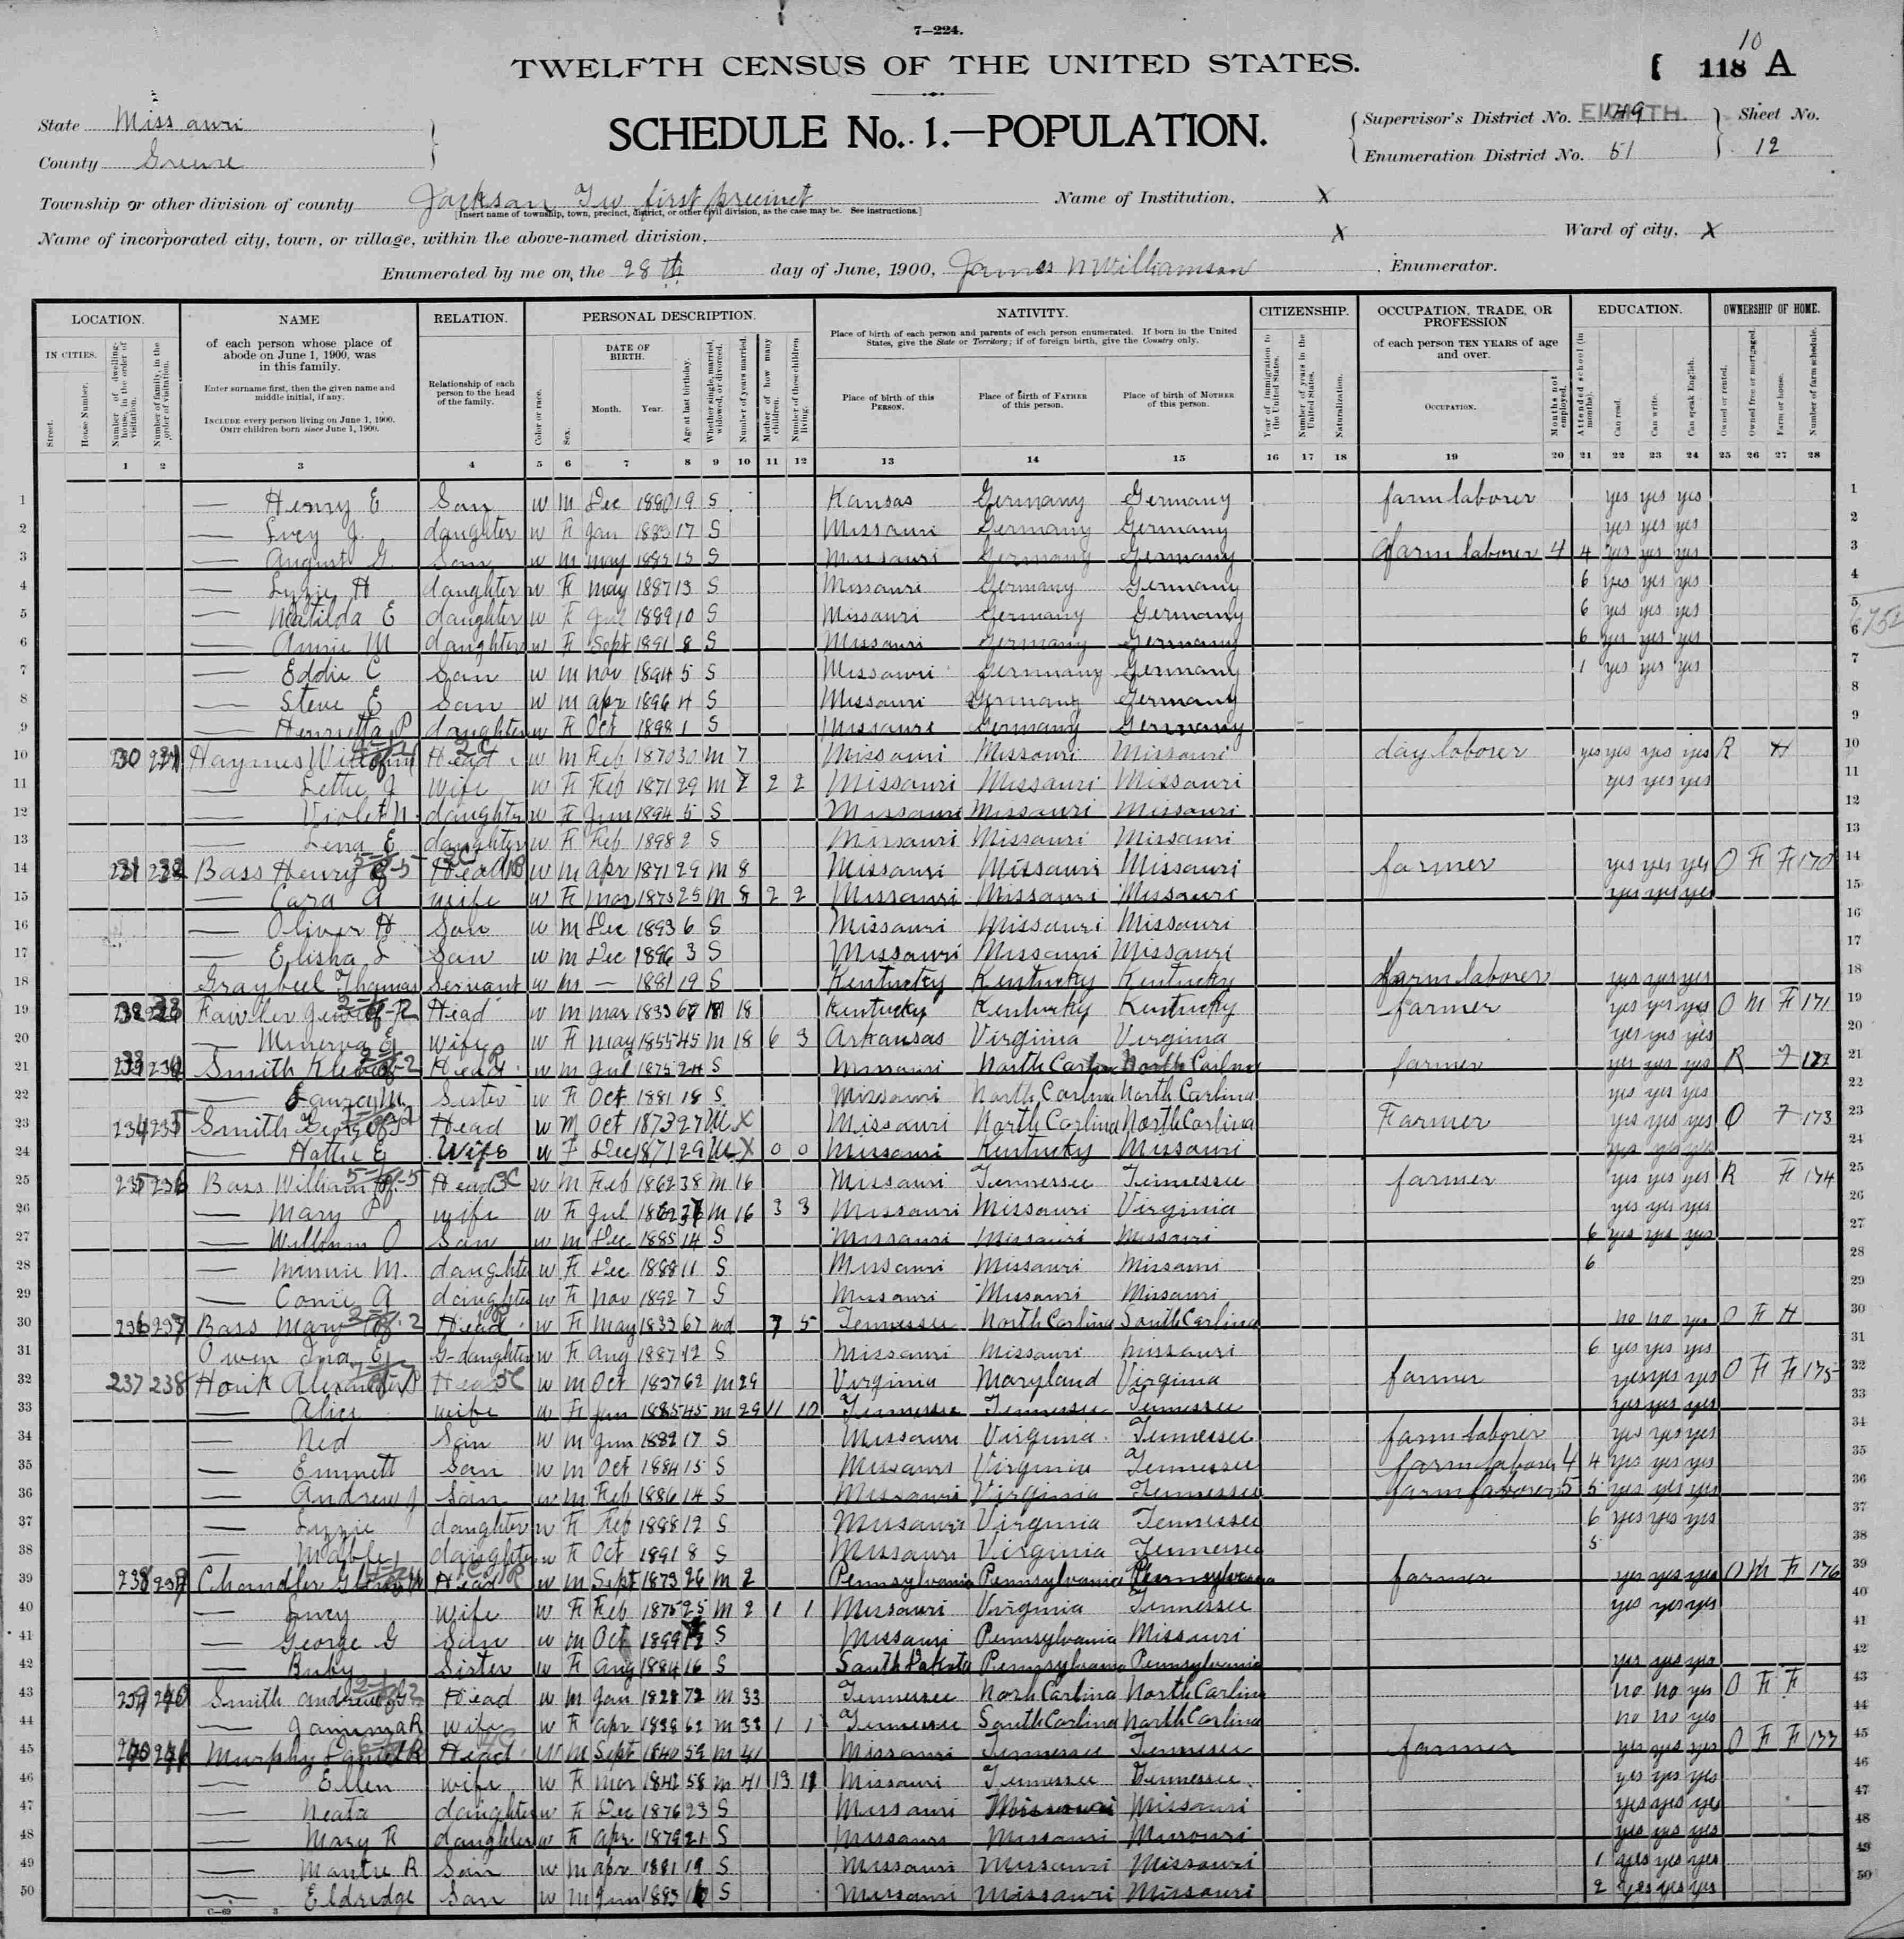 7—224.
TWELFTH CENSUS OF THE UNITED STATES.
10
118 A
State Missouri
County Greene
SCHEDULE No. 1.—POPULATION.
Supervisor's District No. EIGHTH. 149
Enumeration District No. 51
Sheet No. 12
Township or other division of county Jackson Tw first precinct
[Insert name of township, town, precinct, district, or other civil division, as the case may be. See instructions.]
Name of Institution, X
Name of incorporated city, town, or village, within the above-named division, X
Ward of city, X
Enumerated by me on the 28th day of June, 1900, James N Williamson, Enumerator.
LOCATION. NAME RELATION. PERSONAL DESCRIPTION. NATIVITY. CITIZENSHIP. OCCUPATION, TRADE, OR PROFESSION EDUCATION. OWNERSHIP OF HOME.
IN CITIES. Street. House Number. Number of dwelling-house, in the order of visitation. Number of family, in the order of visitation.
of each person whose place of abode on June 1, 1900, was in this family.
Enter surname first, then the given name and middle initial, if any.
INCLUDE every person living on June 1, 1900. OMIT children born since June 1, 1900.
Relationship of each person to the head of the family.
Color or race. Sex. DATE OF BIRTH. Month. Year. Age at last birthday. Whether single, married, widowed, or divorced. Number of years married. Mother of how many children. Number of these children living.
Place of birth of each person and parents of each person enumerated. If born in the United States, give the State or Territory; if of foreign birth, give the Country only.
Place of birth of this PERSON. Place of birth of FATHER of this person. Place of birth of MOTHER of this person.
Year of immigration to the United States. Number of years in the United States. Naturalization.
of each person TEN YEARS of age and over.
OCCUPATION. Months not employed.
Attended school (in months). Can read. Can write. Can speak English.
Owned or rented. Owned free or mortgaged. Farm or house. Number of farm schedule.
1 2 3 4 5 6 7 8 9 10 11 12 13 14 15 16 17 18 19 20 21 22 23 24 25 26 27 28
1 — Henry E Son w m Dec 1880 19 S Kansas Germany Germany farm laborer yes yes yes 1
2 — Lucy J. daughter w F Jan 1883 17 S Missouri Germany Germany yes yes yes 2
3 — August G. Son w m may 1885 15 S Missouri Germany Germany farm laborer 4 4 yes yes yes 3
4 — Lizzie H daughter w F may 1887 13 S Missouri Germany Germany 6 yes yes yes 4
5 — Matilda E daughter w F Jul 1889 10 S Missouri Germany Germany 6 yes yes yes 5
6 — Annie M daughter w F Sept 1891 8 S Missouri Germany Germany 6 yes yes yes 6
7 — Eddie C Son w m nov 1894 5 S Missouri Germany Germany 1 yes yes yes 7
8 — Steve E Son w m apr 1896 4 S Missouri Germany Germany 8
9 — Henrietta P daughter w F Oct 1898 1 S Missouri Germany Germany 9
10 230 231 Haymes William Head w m Feb 1870 30 m 7 Missouri Missouri Missouri day laborer yes yes yes yes R H 10
11 — Lettie J wife w F Feb 1871 29 m 7 2 2 Missouri Missouri Missouri yes yes yes 11
12 — Violet N. daughter w F Jun 1894 5 S Missouri Missouri Missouri 12
13 — Lena E daughter w F Feb 1898 2 S Missouri Missouri Missouri 13
14 231 232 Bass Henry Head w m apr 1871 29 m 8 Missouri Missouri Missouri farmer yes yes yes O F F 170 14
15 — Cora A wife w F mar 1875 25 m 8 2 2 Missouri Missouri Missouri yes yes yes 15
16 — Oliver H Son w m Dec 1893 6 S Missouri Missouri Missouri 16
17 — Elisha L Son w m Dec 1896 3 S Missouri Missouri Missouri 17
18 Graybeel Thomas Servant w m — 1881 19 S Kentucky Kentucky Kentucky farm laborer yes yes yes 18
19 232 233 Head w m mar 1833 67 m 18 Kentucky Kentucky Kentucky farmer yes yes yes O M F 171 19
20 — Minerva E wife w F may 1855 45 m 18 6 3 Arkansas Virginia Virginia yes yes yes 20
21 233 234 Smith Head w m Jul 1875 24 S Missouri North Carlina North Carlina farmer yes yes yes R F 172 21
22 — M Sister w F Oct 1881 18 S Missouri North Carlina North Carlina yes yes yes 22
23 234 235 Smith George Head w m Oct 1873 27 M X Missouri North Carlina North Carlina Farmer yes yes yes O F 173 23
24 — Hattie E Wife w F Dec 1871 29 M X 0 0 Missouri Kentucky Missouri yes yes yes 24
25 235 236 Bass William Head w m Feb 1862 38 m 16 Missouri Tennessee Tennessee farmer yes yes yes R F 174 25
26 — Mary P wife w F Jul 37 m 16 3 3 Missouri Missouri Virginia yes yes yes 26
27 — William O Son w m Dec 1885 14 S Missouri Missouri Missouri 6 yes yes yes 27
28 — Minnie M. daughter w F Dec 1888 11 S Missouri Missouri Missouri 6 28
29 — Conie A daughter w F nov 1892 7 S Missouri Missouri Missouri 29
30 236 237 Bass Mary Head w F may 1833 67 wd 7 5 Tennessee North Carlina South Carlina no no yes O F H 30
31 Owen Ina E G-daughter w F aug 1887 12 S Missouri Missouri Missouri 6 yes yes yes 31
32 237 238 Houk Alexander Head w m Oct 1837 62 m 29 Virginia Maryland Virginia farmer yes yes yes O F F 175 32
33 — Alice wife w F Jan 1855 45 m 29 11 10 Tennessee Tennessee Tennessee yes yes yes 33
34 — Ned Son w m Jun 1882 17 S Missouri Virginia Tennessee farm laborer yes yes yes 34
35 — Emmett Son w m Oct 1884 15 S Missouri Virginia Tennessee farm laborer 4 4 yes yes yes 35
36 — Andrew J Son w m Feb 1886 14 S Missouri Virginia Tennessee farm laborer 5 5 yes yes yes 36
37 — Lizzie daughter w F Feb 1888 12 S Missouri Virginia Tennessee 6 yes yes yes 37
38 — Mable daughter w F Oct 1891 8 S Missouri Virginia Tennessee 5 38
39 238 239 Chandler Head w m Sept 1873 26 m 2 Pennsylvania Pennsylvania Pennsylvania farmer yes yes yes O M F 176 39
40 — Lucy wife w F Feb 1875 25 m 2 1 1 Missouri Virginia Tennessee yes yes yes 40
41 — George G Son w m Oct 1899 S Missouri Pennsylvania Missouri 41
42 — Ruby Sister w F aug 1884 16 S South Dakota Pennsylvania Pennsylvania yes yes yes 42
43 239 240 Smith Andrew Head w m Jan 1828 72 m 33 Tennessee North Carlina North Carlina no no yes O F F 43
44 — Jamima R wife w F apr 1838 62 m 33 1 1 Tennessee South Carlina North Carlina no no yes 44
45 240 241 Murphy Daniel R Head w m Sept 1840 59 m 41 Missouri Tennessee Tennessee farmer yes yes yes O F F 177 45
46 — Ellen wife w F mar 1842 58 m 41 13 11 Missouri Tennessee Tennessee yes yes yes 46
47 — Neata daughter w F Dec 1876 23 S Missouri Missouri Missouri yes yes yes 47
48 — Mary F daughter w F apr 1879 21 S Missouri Missouri Missouri yes yes yes 48
49 — R Son w m apr 1881 19 S Missouri Missouri Missouri 1 yes yes yes 49
50 — Eldridge Son w m Jun 1883 16 S Missouri Missouri Missouri 2 yes yes yes 50